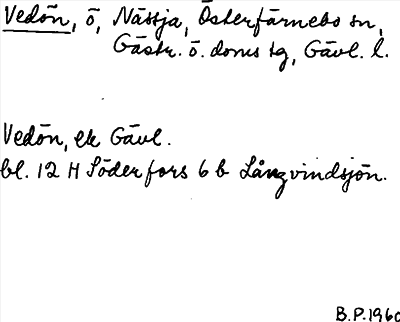 Vedön, ö, Nässja, Österfärnebo sn,
Gästr. ö. doms tg, Gävl. l.
Vedön, ek Gävl.
bl. 12 H Söderfors 6 b Långvindsjön.
B.P. 1960